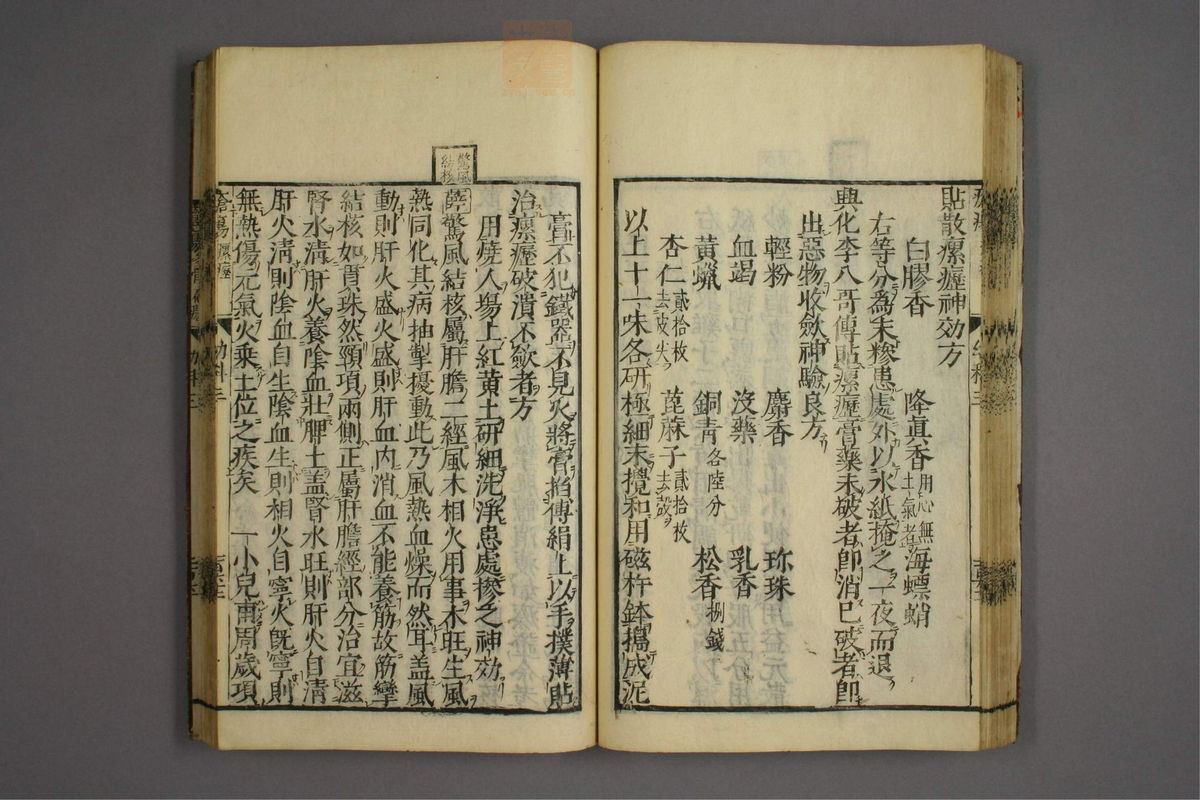 貼散瘰癧神効方
白膠香 降眞香用心無土氣者 海螵蛸
右等分爲末糝患處外以水紙掩之一夜而退
興化李八哥傳貼瘰癧膏藥未破者即消已破者即
出惡物收斂神驗良方
輕粉 麝香 珎珠
血竭 沒藥 乳香
黃蠟 銅青各陸分 松香捌錢
杏仁貳拾枚去皮尖 萞麻子貳拾枚去殻
以上十一味各研極細末攪和用磁杵鉢搗成泥
膏不犯鐵器不見火將膏拍傅絹上以手撲薄貼
治瘰癧破潰不斂者方
用燒人塲上紅黃土研細洗淨患處摻之神効
驚風結核
薛驚風結核屬肝膽二經風木相火用事木旺生風
熱同化其病抽掣擾動此乃風熱血燥而然耳盖風
動則肝火盛火盛則肝血內消血不能養筋故筋攣
結核如貫珠然頸項兩側正屬肝膽經部分治宜滋
腎水淸肝火養陰血壯脾土盖腎水旺則肝火自淸
肝火淸則陰血自生陰血生則相火自寧火旣寧則
無熱傷元氣火乘土位之疾矣 一小兒甫周歲項
瘡瘍 瘰癧 幼科三